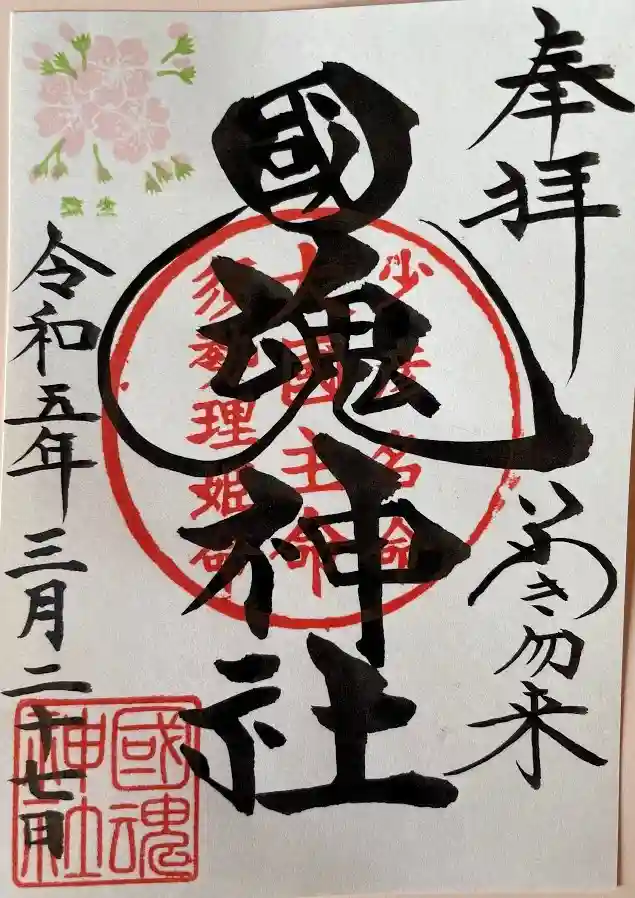 奉拝
いわき勿来
國魂神社
少彦名命
大國主命
須勢理姫命
弥生
令和五年三月二十七日
國魂
神社